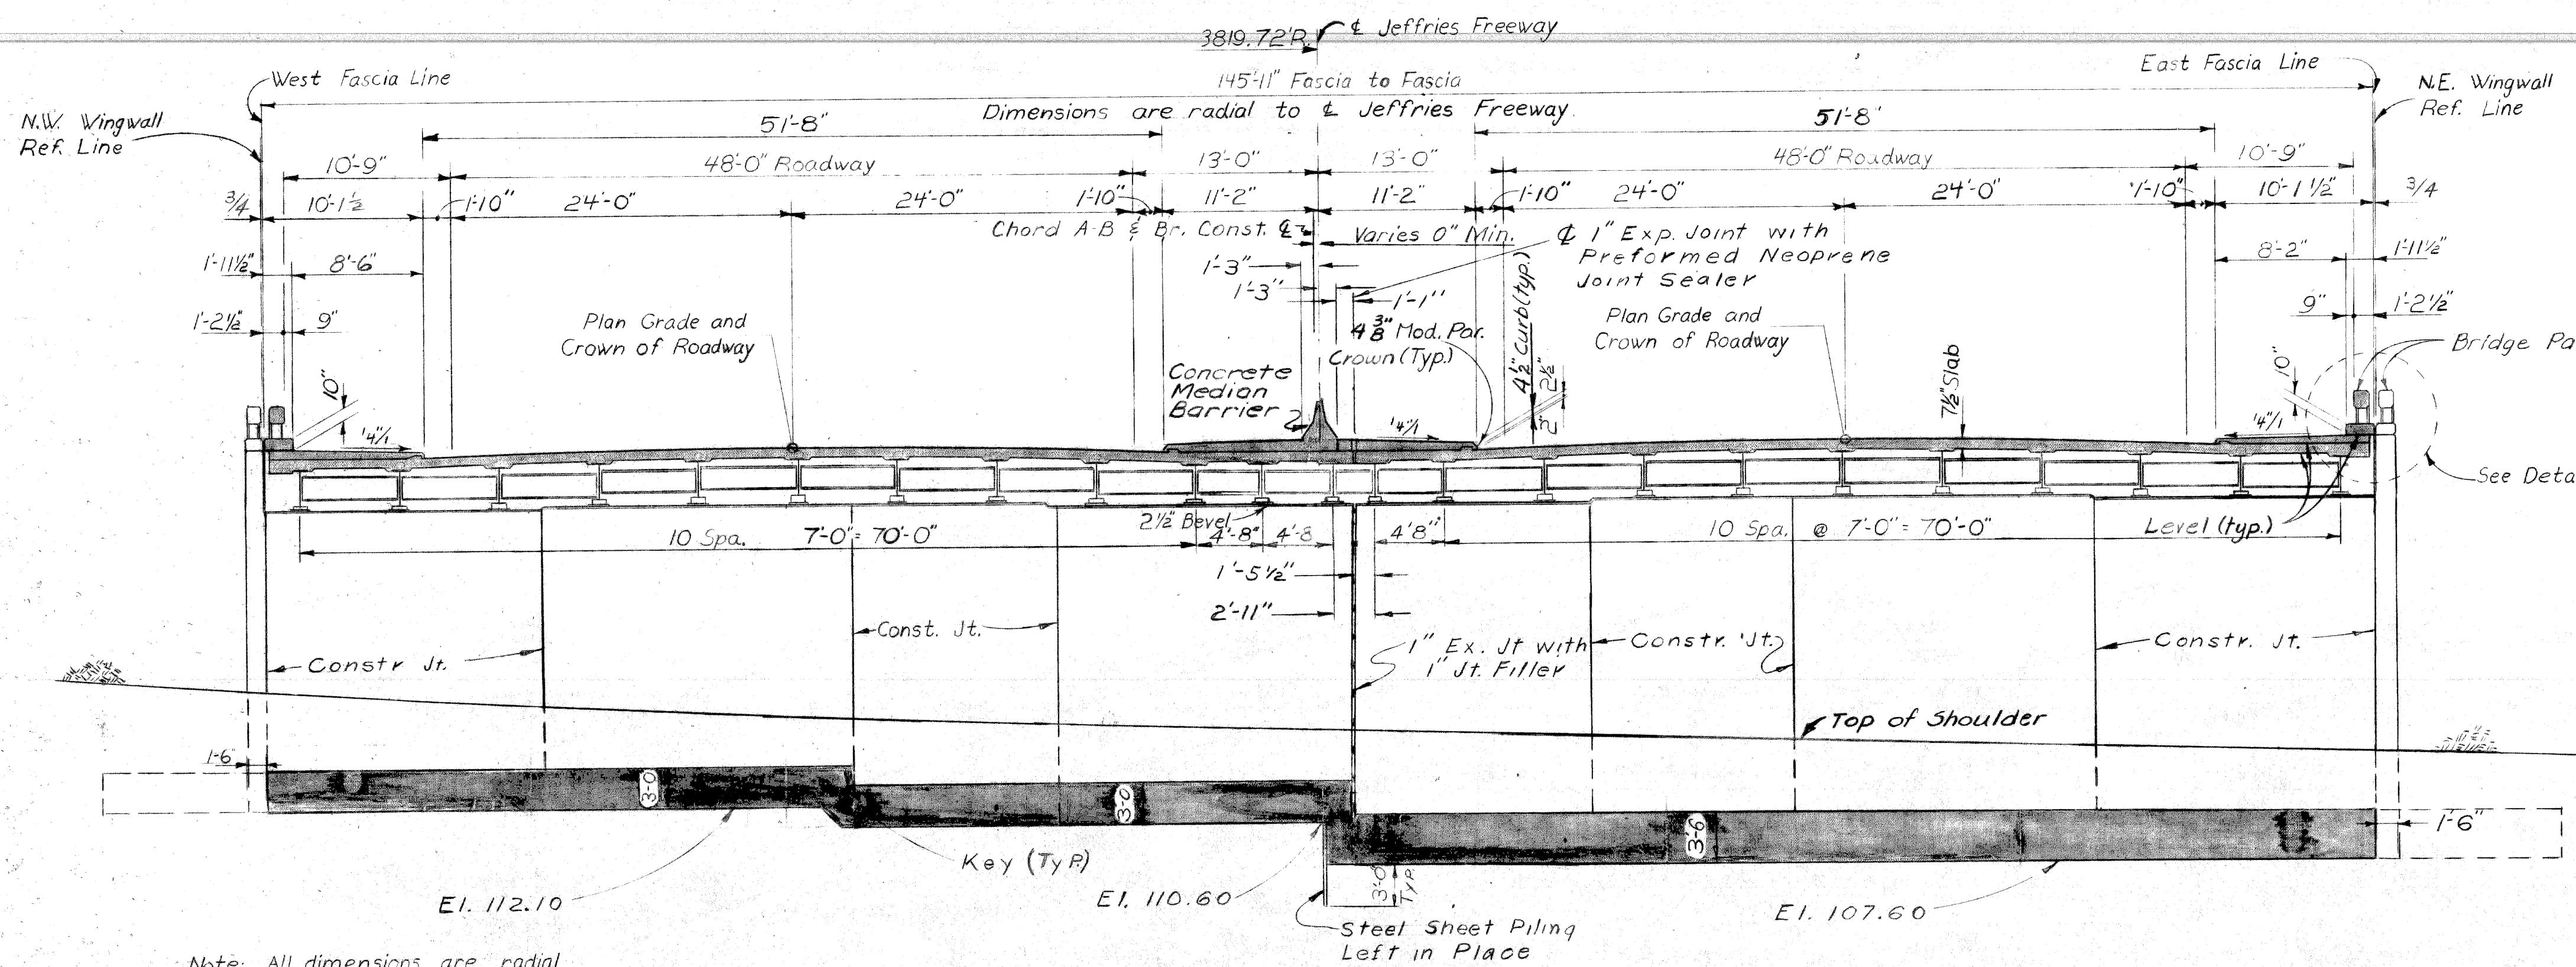 3819.72'R.
℄ Jeffries Freeway
West Fascia Line
145'-11" Fascia to Fascia
East Fascia Line
N.W. Wingwall
Ref. Line
N.E. Wingwall
Ref. Line
Dimensions are radial to ℄ Jeffries Freeway.
51'-8"
51'-8"
10'-9"
48'-0" Roadway
13'-0"
13'-0"
48'-0" Roadway
10'-9"
3/4
10'-1½
1'-10"
24'-0"
24'-0"
1'-10"
11'-2"
11'-2"
1'-10"
24'-0"
24'-0"
1'-10"
10'-1½"
3/4
Chord A-B & Br. Const. ℄
Varies 0" Min.
℄ 1" Exp. Joint with
Preformed Neoprene
Joint Sealer
1'-11½"
8'-6"
1'-3"
1'-3"
1'-1"
8'-2"
1'-11½"
1'-2½"
9"
9"
1'-2½"
Plan Grade and
Crown of Roadway
4⅜" Mod. Par.
Crown (Typ.)
4½" Curb (typ.)
2½"
2"
Plan Grade and
Crown of Roadway
7½" Slab
Bridge Pa
10"
Concrete
Median
Barrier
10"
¼"/1
¼"/1
¼"/1
See Deta
2½" Bevel
10 Spa. 7'-0" = 70'-0"
4'-8"
4'-8
4'8"
10 Spa. @ 7'-0" = 70'-0"
Level (typ.)
1'-5½"
2'-11"
Constr Jt.
Const. Jt.
1" Ex. Jt with
1" Jt. Filler
Constr. Jt.
Constr. Jt.
Top of Shoulder
1'-6"
3'-0
3'-0
3'-6
1'-6"
Key (Typ.)
El. 112.10
El. 110.60
3'-0"
Typ.
El. 107.60
Steel Sheet Piling
Left in Place
Note: All dimensions are radial